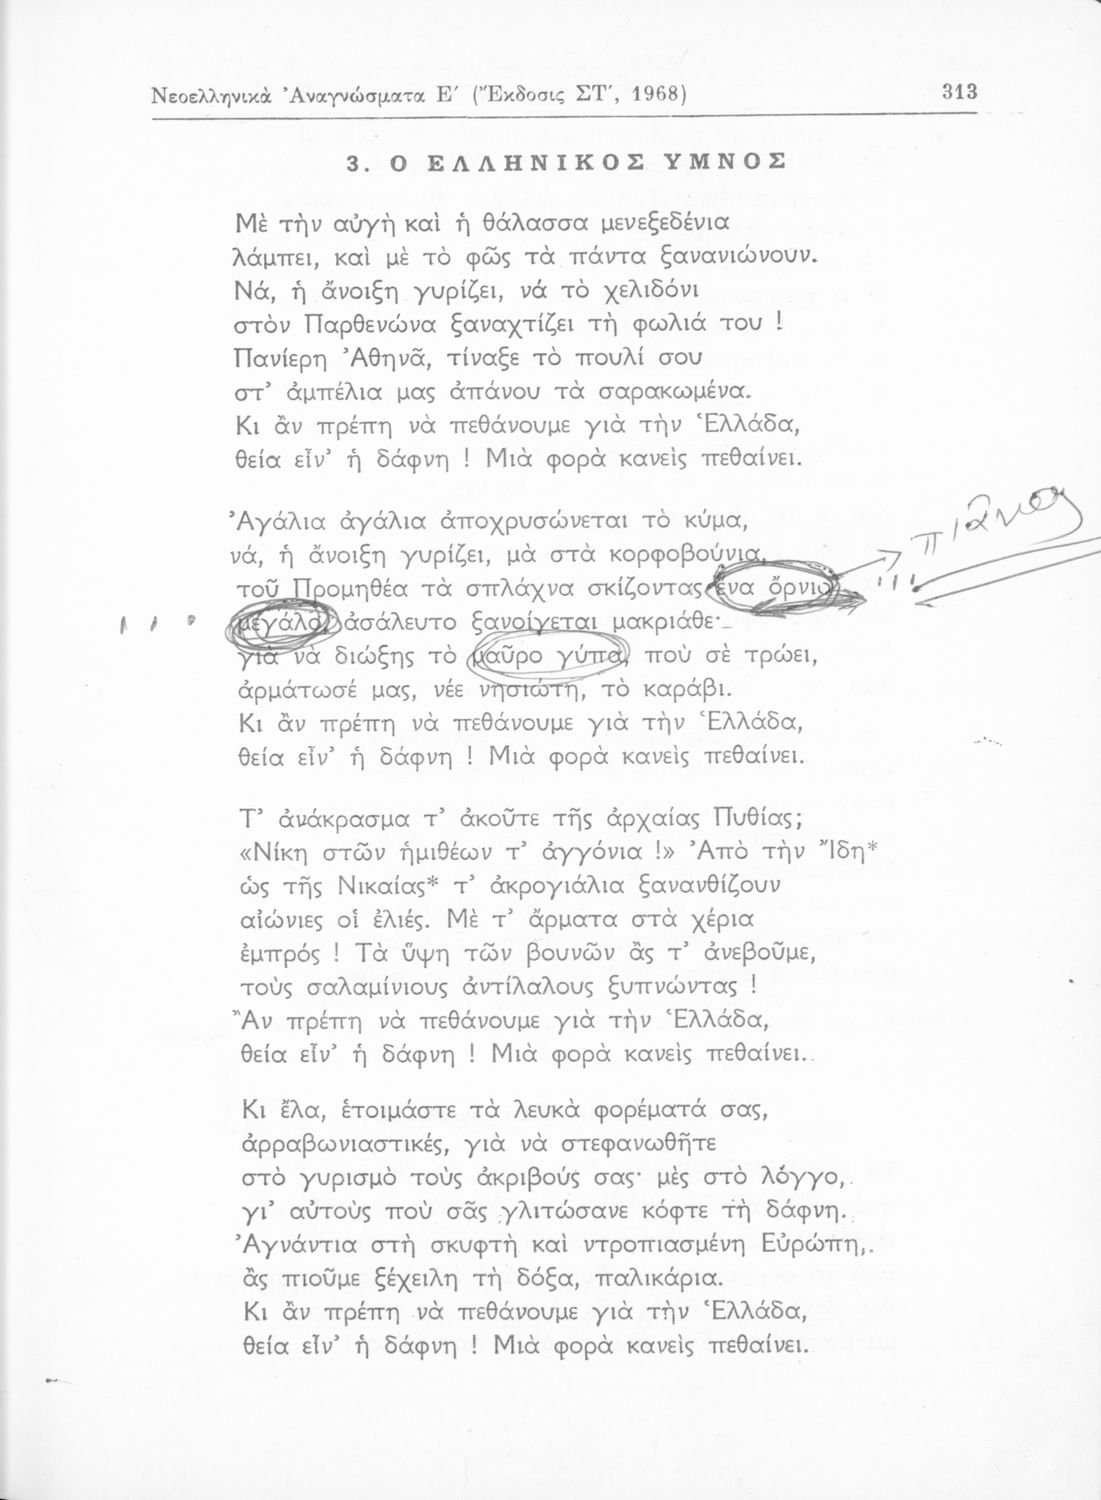 Νεοελληνικὰ Ἀναγνώσματα Ε΄ (Ἔκδοσις ΣΤ΄, 1968) 313
3. Ο ΕΛΛΗΝΙΚΟΣ ΥΜΝΟΣ
Μὲ τὴν αὐγὴ καὶ ἡ θάλασσα μενεξεδένια
λάμπει, καὶ μὲ τὸ φῶς τὰ πάντα ξανανιώνουν.
Νά, ἡ ἄνοιξη γυρίζει, νά τὸ χελιδόνι
στὸν Παρθενώνα ξαναχτίζει τὴ φωλιά του !
Πανίερη Ἀθηνᾶ, τίναξε τὸ πουλί σου
στ' ἀμπέλια μας ἀπάνου τὰ σαρακωμένα.
Κι ἂν πρέπη νὰ πεθάνουμε γιὰ τὴν Ἑλλάδα,
θεία εἶν' ἡ δάφνη ! Μιὰ φορὰ κανεὶς πεθαίνει.
Ἀγάλια ἀγάλια ἀποχρυσώνεται τὸ κύμα,
νά, ἡ ἄνοιξη γυρίζει, μὰ στὰ κορφοβούνια,
πιᾶνος
τοῦ Προμηθέα τὰ σπλάχνα σκίζοντας ἕνα ὄρνιο
μεγάλο, ἀσάλευτο ξανοίγεται μακριάθε·
γιὰ νὰ διώξης τὸ μαῦρο γύπα, ποὺ σὲ τρώει,
ἁρμάτωσέ μας, νέε νησιώτη, τὸ καράβι.
Κι ἂν πρέπη νὰ πεθάνουμε γιὰ τὴν Ἑλλάδα,
θεία εἶν' ἡ δάφνη ! Μιὰ φορὰ κανεὶς πεθαίνει.
Τ' ἀνάκρασμα τ' ἀκοῦτε τῆς ἀρχαίας Πυθίας;
«Νίκη στῶν ἡμιθέων τ' ἀγγόνια !» Ἀπὸ τὴν Ἴδη*
ὡς τῆς Νικαίας* τ' ἀκρογιάλια ξανανθίζουν
αἰώνιες οἱ ἐλιές. Μὲ τ' ἄρματα στὰ χέρια
ἐμπρός ! Τὰ ὕψη τῶν βουνῶν ἂς τ' ἀνεβοῦμε,
τοὺς σαλαμίνιους ἀντίλαλους ξυπνώντας !
Ἂν πρέπη νὰ πεθάνουμε γιὰ τὴν Ἑλλάδα,
θεία εἶν' ἡ δάφνη ! Μιὰ φορὰ κανεὶς πεθαίνει.
Κι ἔλα, ἑτοιμάστε τὰ λευκὰ φορέματά σας,
ἀρραβωνιαστικές, γιὰ νὰ στεφανωθῆτε
στὸ γυρισμὸ τοὺς ἀκριβούς σας· μὲς στὸ λόγγο,
γι' αὐτοὺς ποὺ σᾶς γλιτώσανε κόφτε τὴ δάφνη.
Ἀγνάντια στὴ σκυφτὴ καὶ ντροπιασμένη Εὐρώπη,
ἂς πιοῦμε ξέχειλη τὴ δόξα, παλικάρια.
Κι ἂν πρέπη νὰ πεθάνουμε γιὰ τὴν Ἑλλάδα,
θεία εἶν' ἡ δάφνη ! Μιὰ φορὰ κανεὶς πεθαίνει.